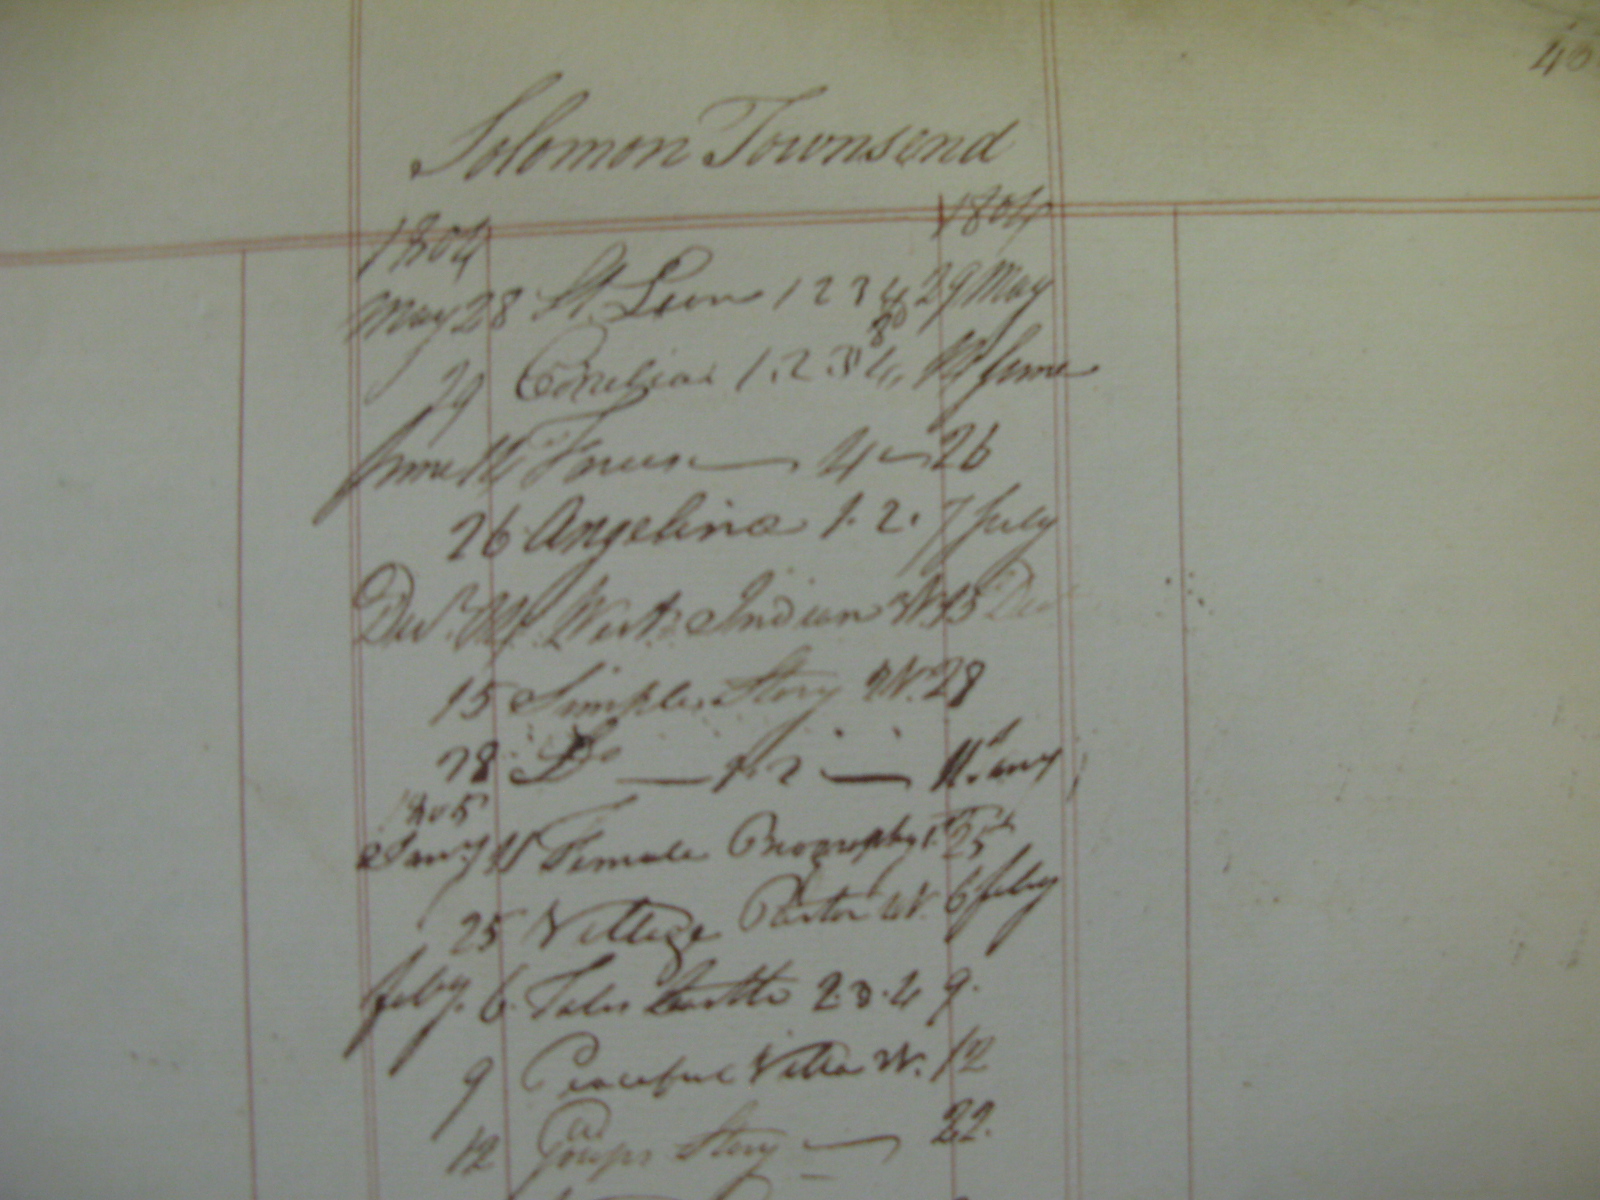 40
Solomon Townsend
1804 1804
May 28 St. Leon 1 2 3 4 29 May
30
29 Cornelia 1.2 3 4. 14 June
June 14 4 — 26
26 Angelina 1. 2. 7 July
Decr. West Indian W. 15 Dec
15 Simple Story W. 28
28 Do — 1. 2 — 11 Jany
1805
Jany 11 Female Biography 1. 25
25 Village Pastor W. 6 feby
feby. 6. Tales Castle 2. 3. 4 9.
9 Peaceful Villa W. 12
12 Story — 22.